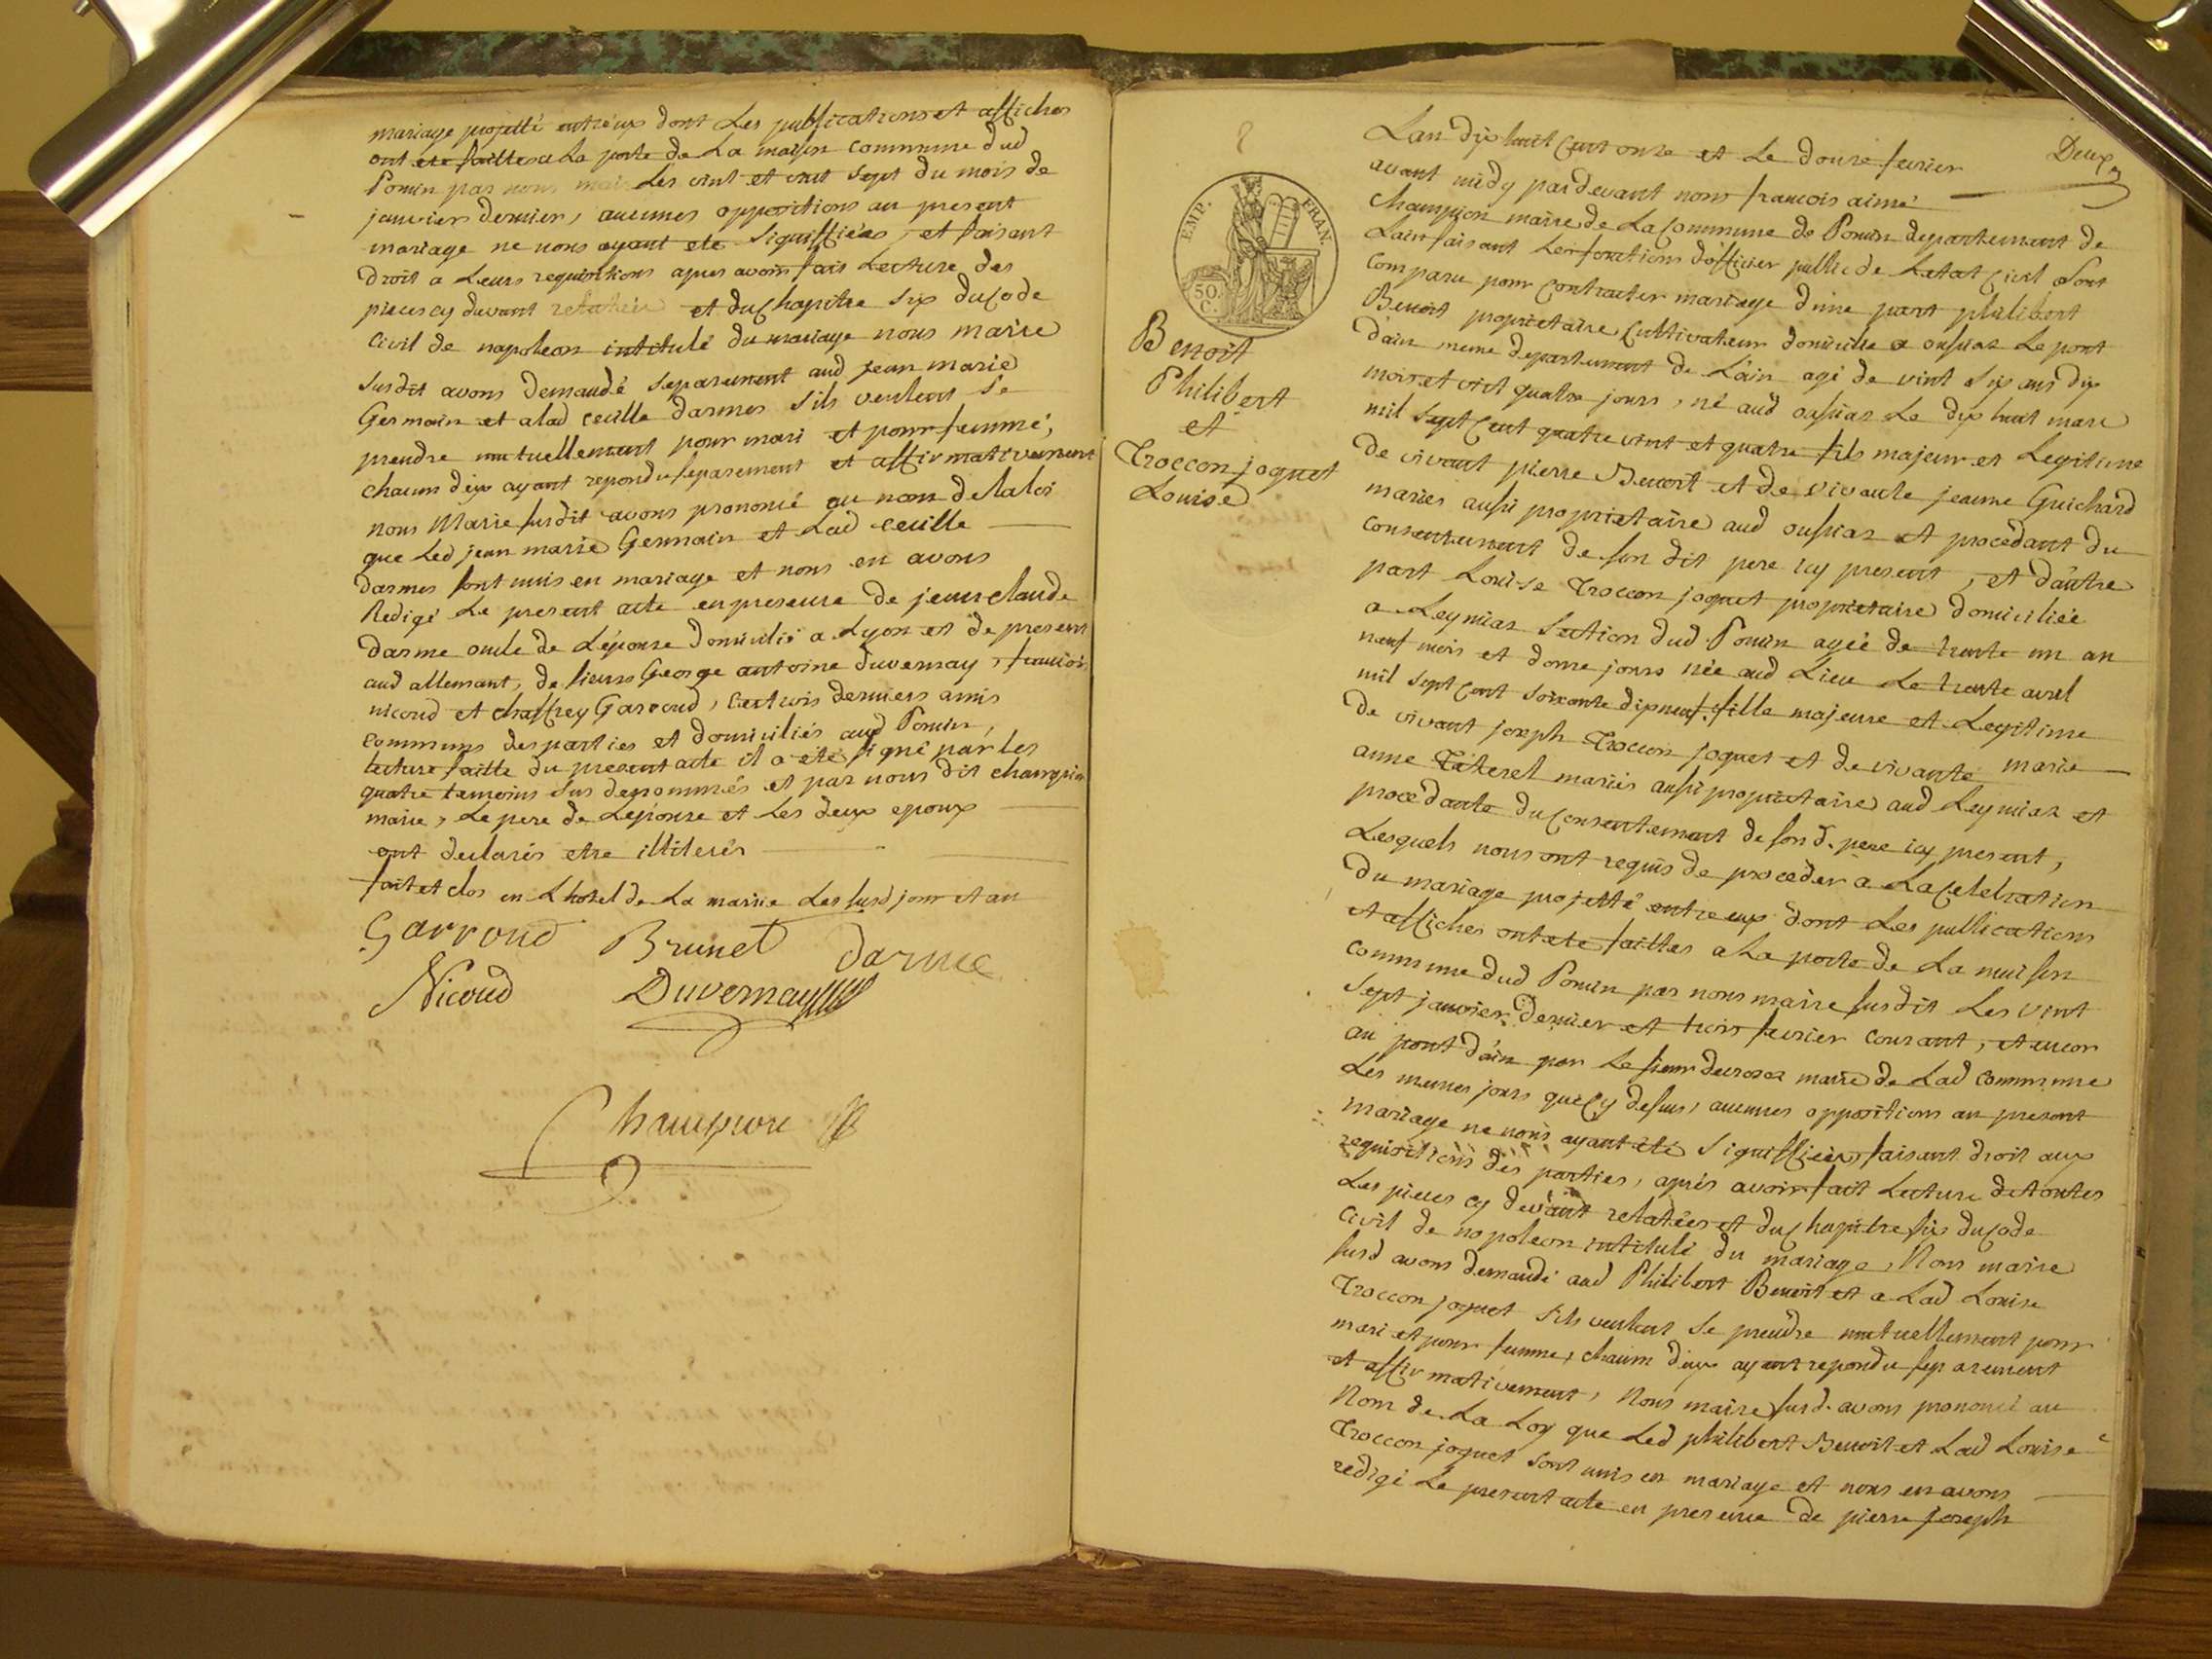 mariage projetté entr'eux dont Les publications et affiches
ont été faittes a La porte de La maison commune dud
Poncin par nous maire Les vint et vint sept du mois de
janvier dernier, aucunes oppositions au present
mariage ne nous ayant eté signiffiées, et faisant
droit a Leurs requisitions apres avoir fais Lecture des
pieces cy devant relatées et du Chapitre six du Code
Civil de napoleon intitulé du mariage nous maire
susdit avons demandé separement aud jean marie
Germain et a lad cecille darmes sils veulent se
prendre mutuellement pour mari et pour femme,
chacun deux ayant repondu separement et affirmativement
nous Maire susdit avons prononcé au nom de la loi
que Led jean marie Germain et Lad cecille
darmes sont unis en mariage et nous en avons
Redigé Le present acte en presence de jean claude
darme oncle de Lépouse domicilié a Lyon et de present
aud allemant, de sieurs George antoine duvernay, francois
nicoud et chaffrey Garroud, Les trois derniers amis
communs des parties et domiciliés aud Poncin,
lecture faitte du present acte il a été signé par les
quatre temoins sus denommés et par nous dit champion
maire, Le pere de Lépouse et Les deux epoux
ont declarés etre illiterés
fait et clos en Lhotel de La mairie Les susd jour et an
Garroud Brunet darme
Nicoud Duvernay
Champion
Deux
EMP. FRAN.
50. C.
Benoit
Philibert
et
Troccon joquet
Louise
Lan dix huit Cent onze et Le douze fevrier
avant midy par devant nous francois aimé
Champion maire de La Commune de Poncin departement de
Lain faisant Les fonctions dofficier public de Letat Civil Sont
Comparu pour Contracter mariage dune part philibert
Benoit proprietaire Cultivateur domicilié a oussiaz Le pont
dain meme departement de Lain agé de vint six ans dix
mois et vint quatre jours, né aud oussiaz Le dix huit mars
mil sept Cent quatre vint et quatre fils majeur et Legitime
de vivant pierre Benoit et de vivante jeanne Guichard
mariés aussi proprietaire aud oussiaz et procedant du
Consentement de son dit pere icy present, et dautre
part Louise Troccon joquet proprietaire domiciliée
a Leymiaz section dud Poncin agée de trente un an
neuf mois et douze jours née aud Lieu Le trente avril
mil sept Cent soixante dix neuf, fille majeure et Legitime
de vivant joseph Troccon joquet et de vivante marie
anne mariés aussi proprietaire aud Leymiaz et
procedante du Consentement de son d. pere icy present,
Lesquels nous ont requis de proceder a La Celebration
du mariage projetté entre eux dont Les publications
et affiches ont eté faittes a La porte de La maison
Commune dud Poncin par nous maire susdit Les vint
sept janvier dernier et trois fevrier courant, et encor
au pont dain par Le sieur maire de Lad Commune
Les memes jours que cy dessus, aucunes oppositions au present
mariage ne nous ayant eté signiffiées, faisant droit aux
requisitions des parties, après avoir fait Lecture de toutes
Les pieces cy devant relatées et du Chapitre six du Code
Civil de napoleon intitulé du mariage, Nous maire
susd avons demandé aud Philibert Benoit et a Lad Louise
Troccon joquet Sils veulent se prendre mutuellement pour
mari et pour femme, chacun deux ayant repondu separement
et affirmativement, Nous maire susd. avons prononcé au
Nom de La Loy que Led philibert Benoit et Lad Louise
Troccon joquet sont unis en mariage et nous en avons
redigé Le present acte en presence de pierre joseph